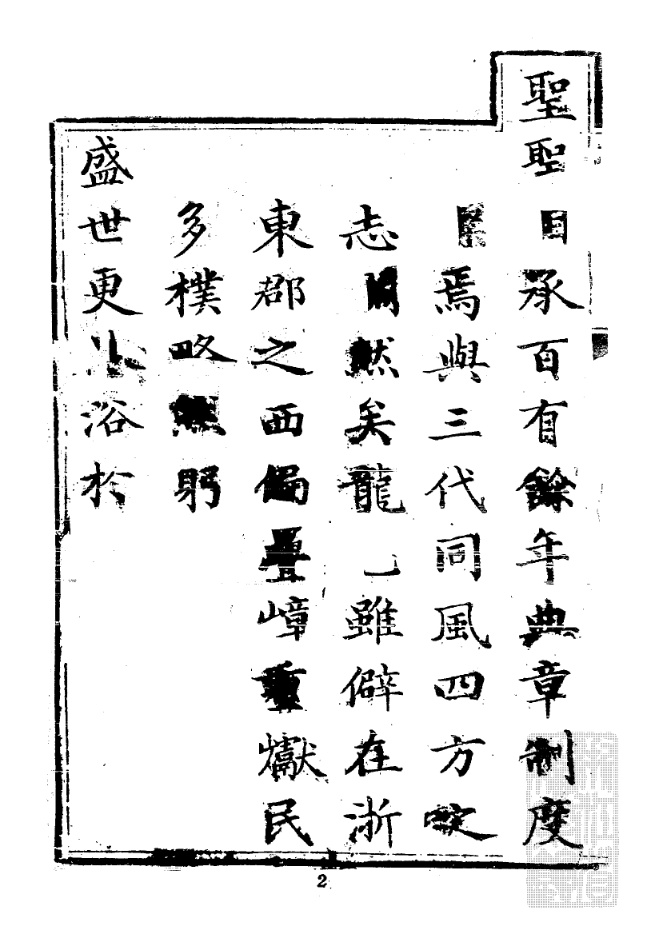 聖聖目承百有餘年典章制度
焉與三代同風四方
志然矣龍雖僻在浙
東郡之西偏疊嶂重巘民
多樸略躬
盛世更沐浴於
2